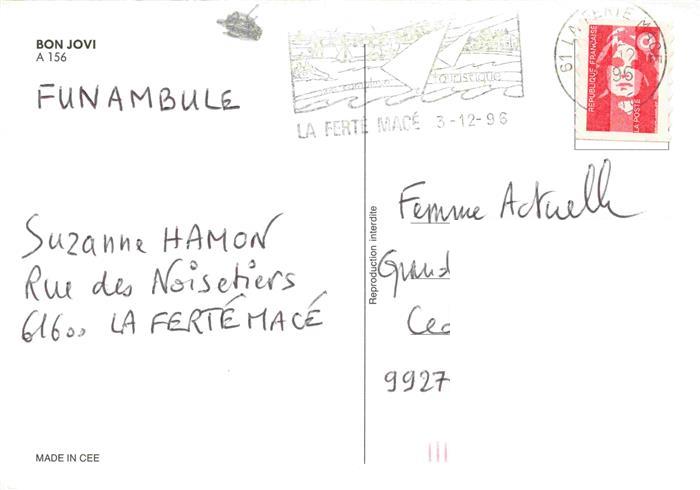 BON JOVI
A 156
FUNAMBULE
Suzanne HAMON
Rue des Noisetiers
61600 LA FERTÉ MACÉ
MADE IN CEE
nautistique
LA FERTÉ MACÉ 3-12-96
61 LA FERTE MACE
12
96
REPUBLIQUE FRANÇAISE
LA POSTE
Reproduction interdite
Femme Actuelle
Grand
Cec
9927